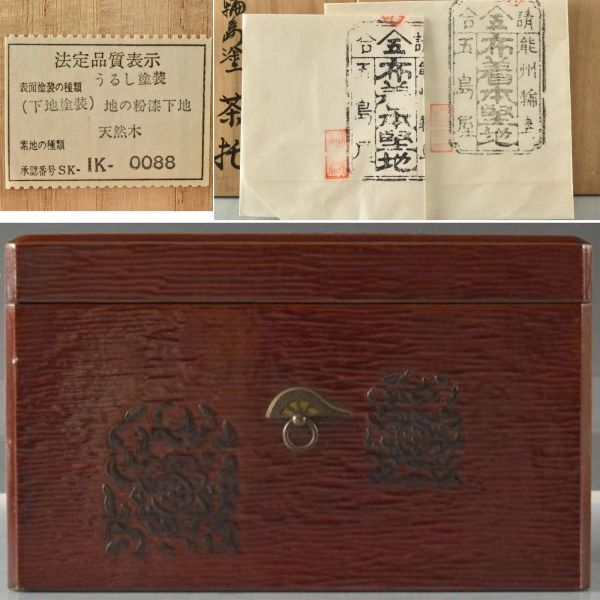 法定品質表示
表面塗装の種類 うるし塗装
(下地塗装) 地の粉漆下地
天然木
素地の種類
承認番号 SK- IK- 0088
輪島塗 茶托
請 能州輪島
布着本堅地
合 五島屋
請 能州輪島
布着本堅地
合 五島屋